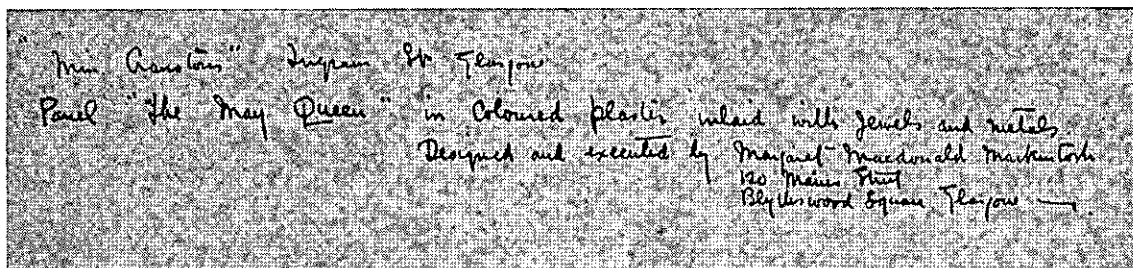 "Miss Cranston's" Ingram St. Glasgow
Panel "The May Queen" in Coloured plaster inlaid with Jewels and metals.
Designed and executed by Margaret Macdonald Mackintosh
120 Mains Street
Blythswood Square Glasgow